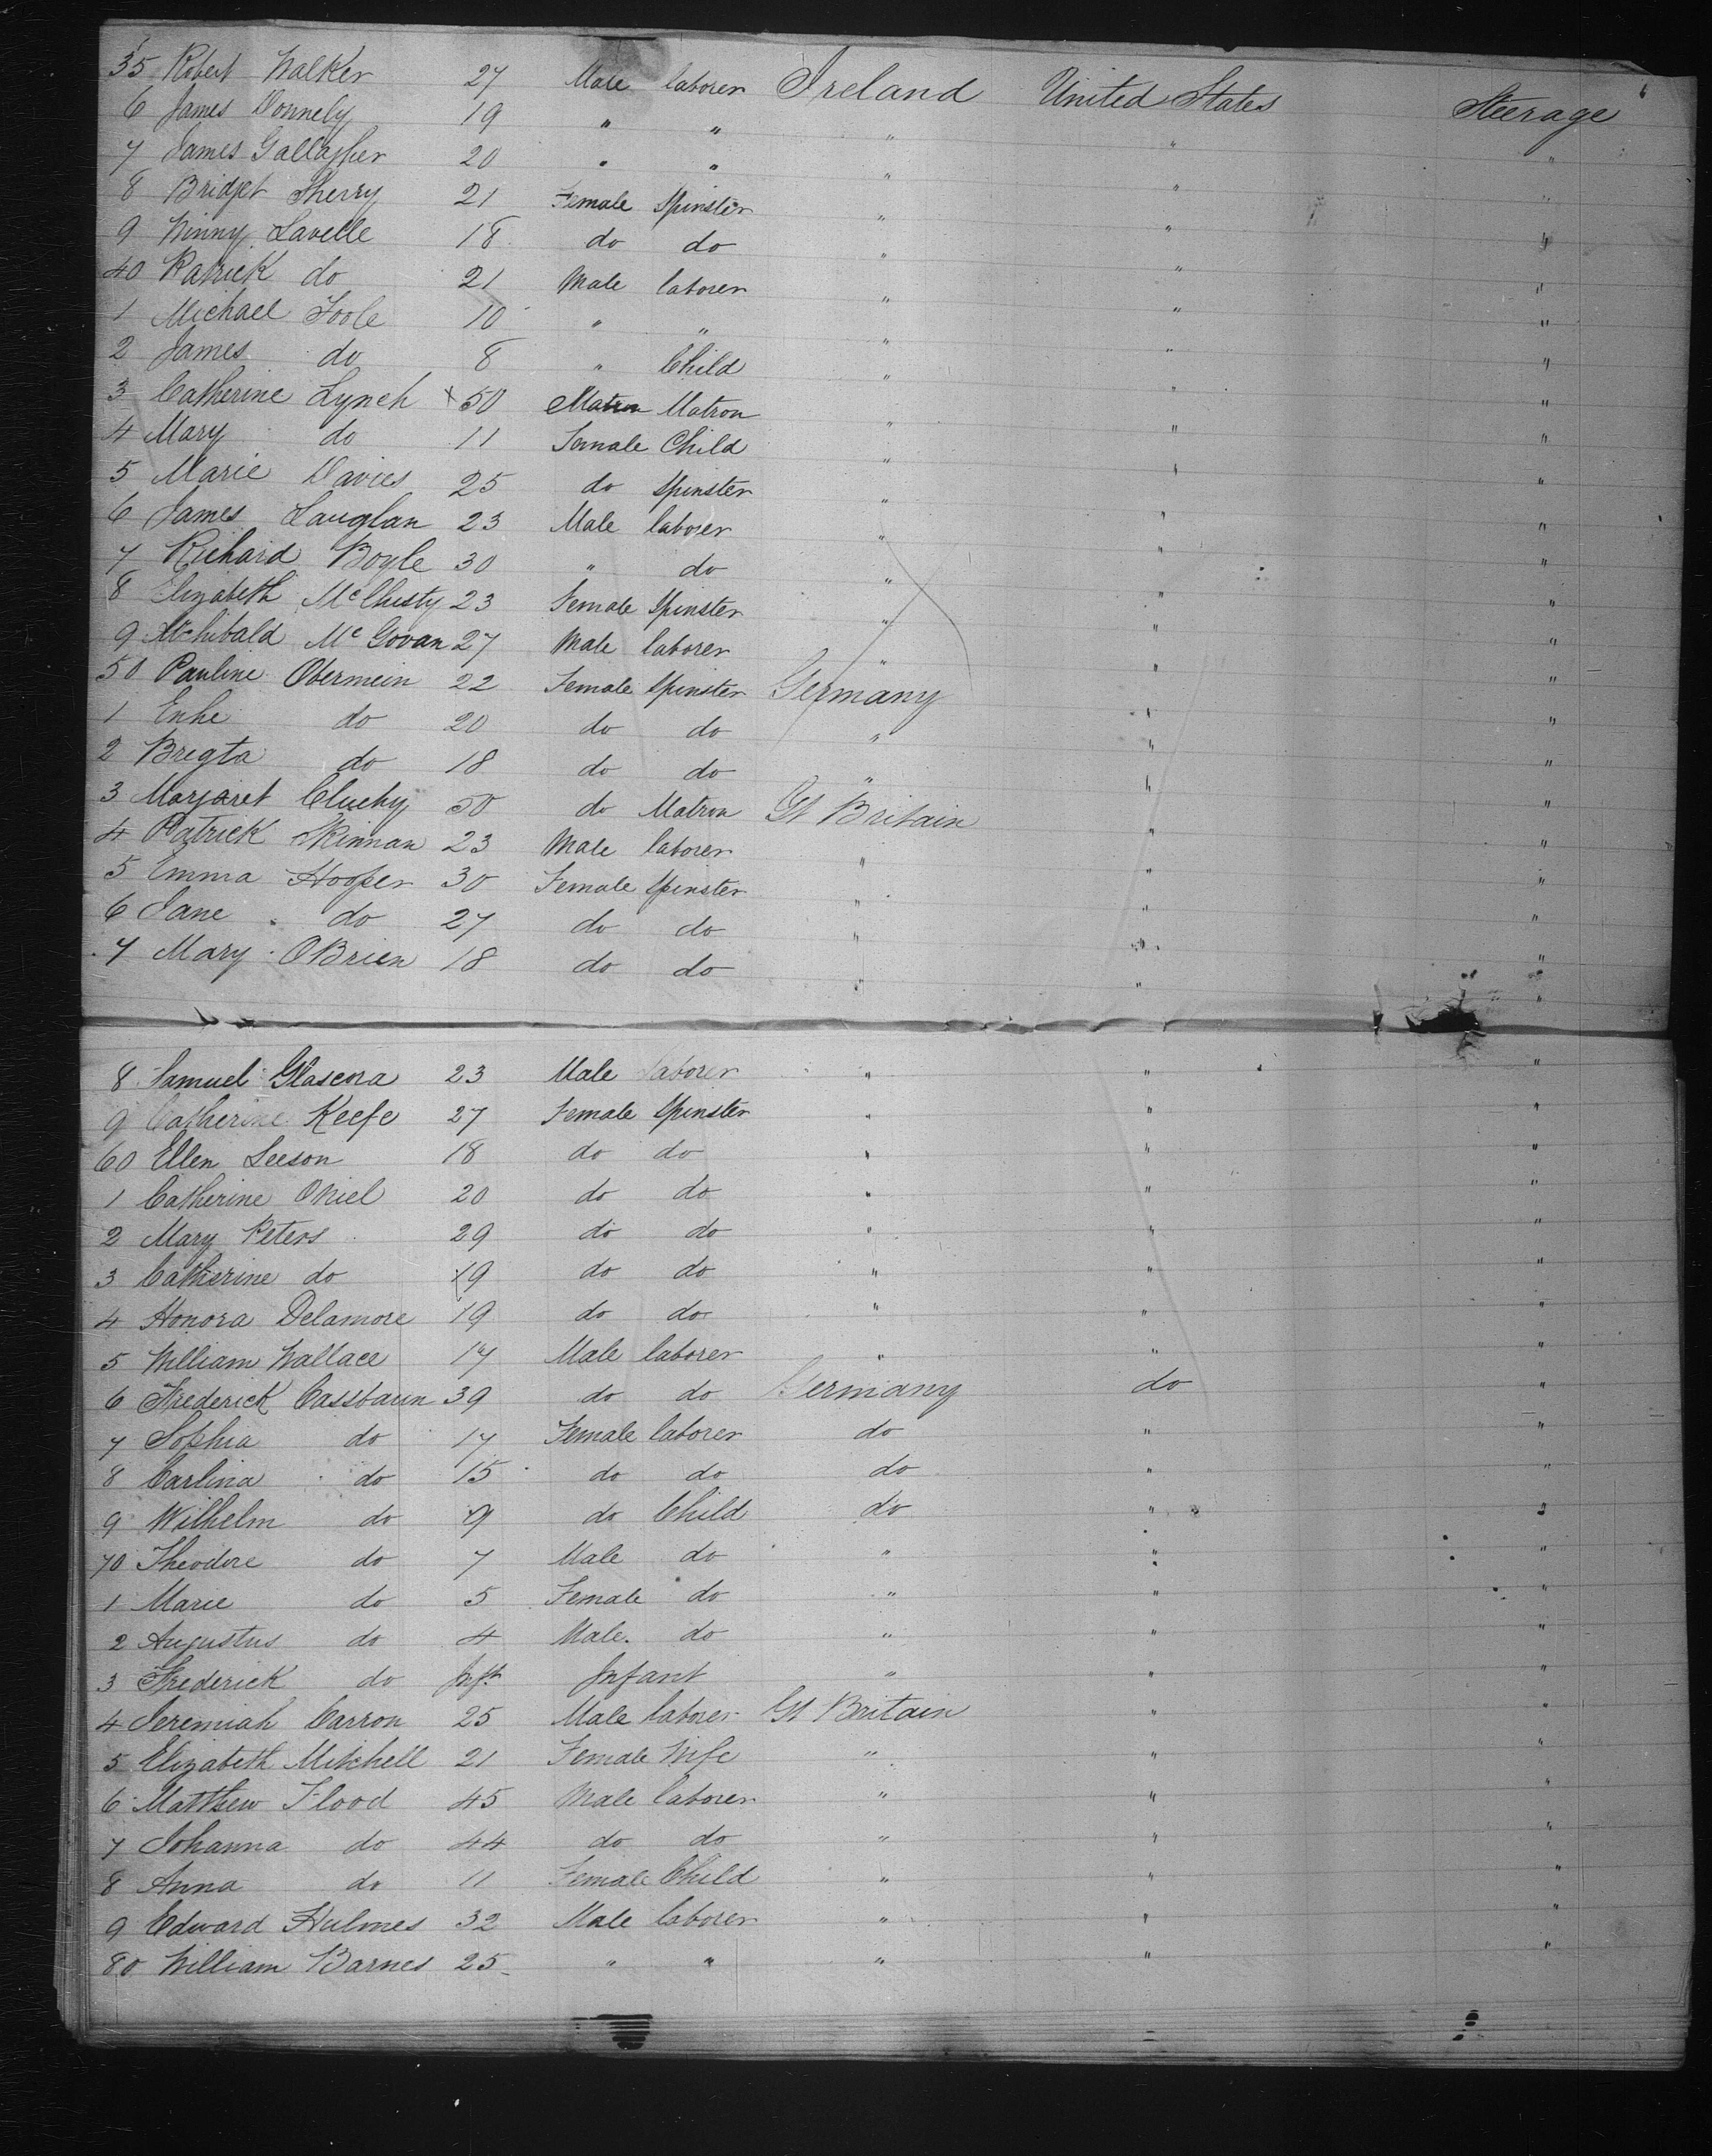 35 Robert Walker 27 Male laborer Ireland United States Steerage
6 James Donnely 19 " " " " "
7 James Gallagher 20 " " " " "
8 Bridget Sherry 21 Female Spinster " " "
9 Winny Lavelle 18 do do " " "
40 Patrick do 21 Male laborer " " "
1 Michael Toole 10 " " " " "
2 James do 8 " Child " " "
3 Catherine Lynch 50 Matron Matron " " "
4 Mary do 11 Female Child " " "
5 Marie Davies 25 do Spinster " " "
6 James Lauglan 23 Male laborer " " "
7 Richard Boyle 30 " do " " "
8 Elizabeth McChisty 23 Female Spinster " " "
9 Archibald McGovan 27 Male laborer " " "
50 Pauline Obermein 22 Female Spinster Germany " "
1 Enhe do 20 do do " " "
2 Bregta do 18 do do " " "
3 Margaret Cluchy 50 do Matron Gt Britain " "
4 Patrick Skinnan 23 Male laborer " " "
5 Emma Hooper 30 Female Spinster " " "
6 Jane do 27 do do " " "
7 Mary OBrien 18 do do " " "
8 Samuel Glascora 23 Male laborer " " "
9 Catherine Keefe 27 Female Spinster " " "
60 Ellen Leeson 18 do do " " "
1 Catherine ONiel 20 do do " " "
2 Mary Peters 29 do do " " "
3 Catherine do 19 do do " " "
4 Honora Delamore 19 do do " " "
5 William Wallace 17 Male laborer " " "
6 Frederick Cassbaun 39 do do Germany do "
7 Sophia do 17 Female laborer do " "
8 Carlina do 15 do do do " "
9 Wilhelm do 9 do Child do " "
70 Theodore do 7 Male do " " "
1 Marie do 5 Female do " " "
2 Augustus do 4 Male do " " "
3 Frederick do Inft Infant " " "
4 Jeremiah Carron 25 Male laborer Gt Britain " "
5 Elizabeth Mitchell 21 Female Wife " " "
6 Matthew Flood 45 Male laborer " " "
7 Johanna do 44 do do " " "
8 Anna do 11 Female Child " " "
9 Edward Hulmes 32 Male laborer " " "
80 William Barnes 25 " " " " "